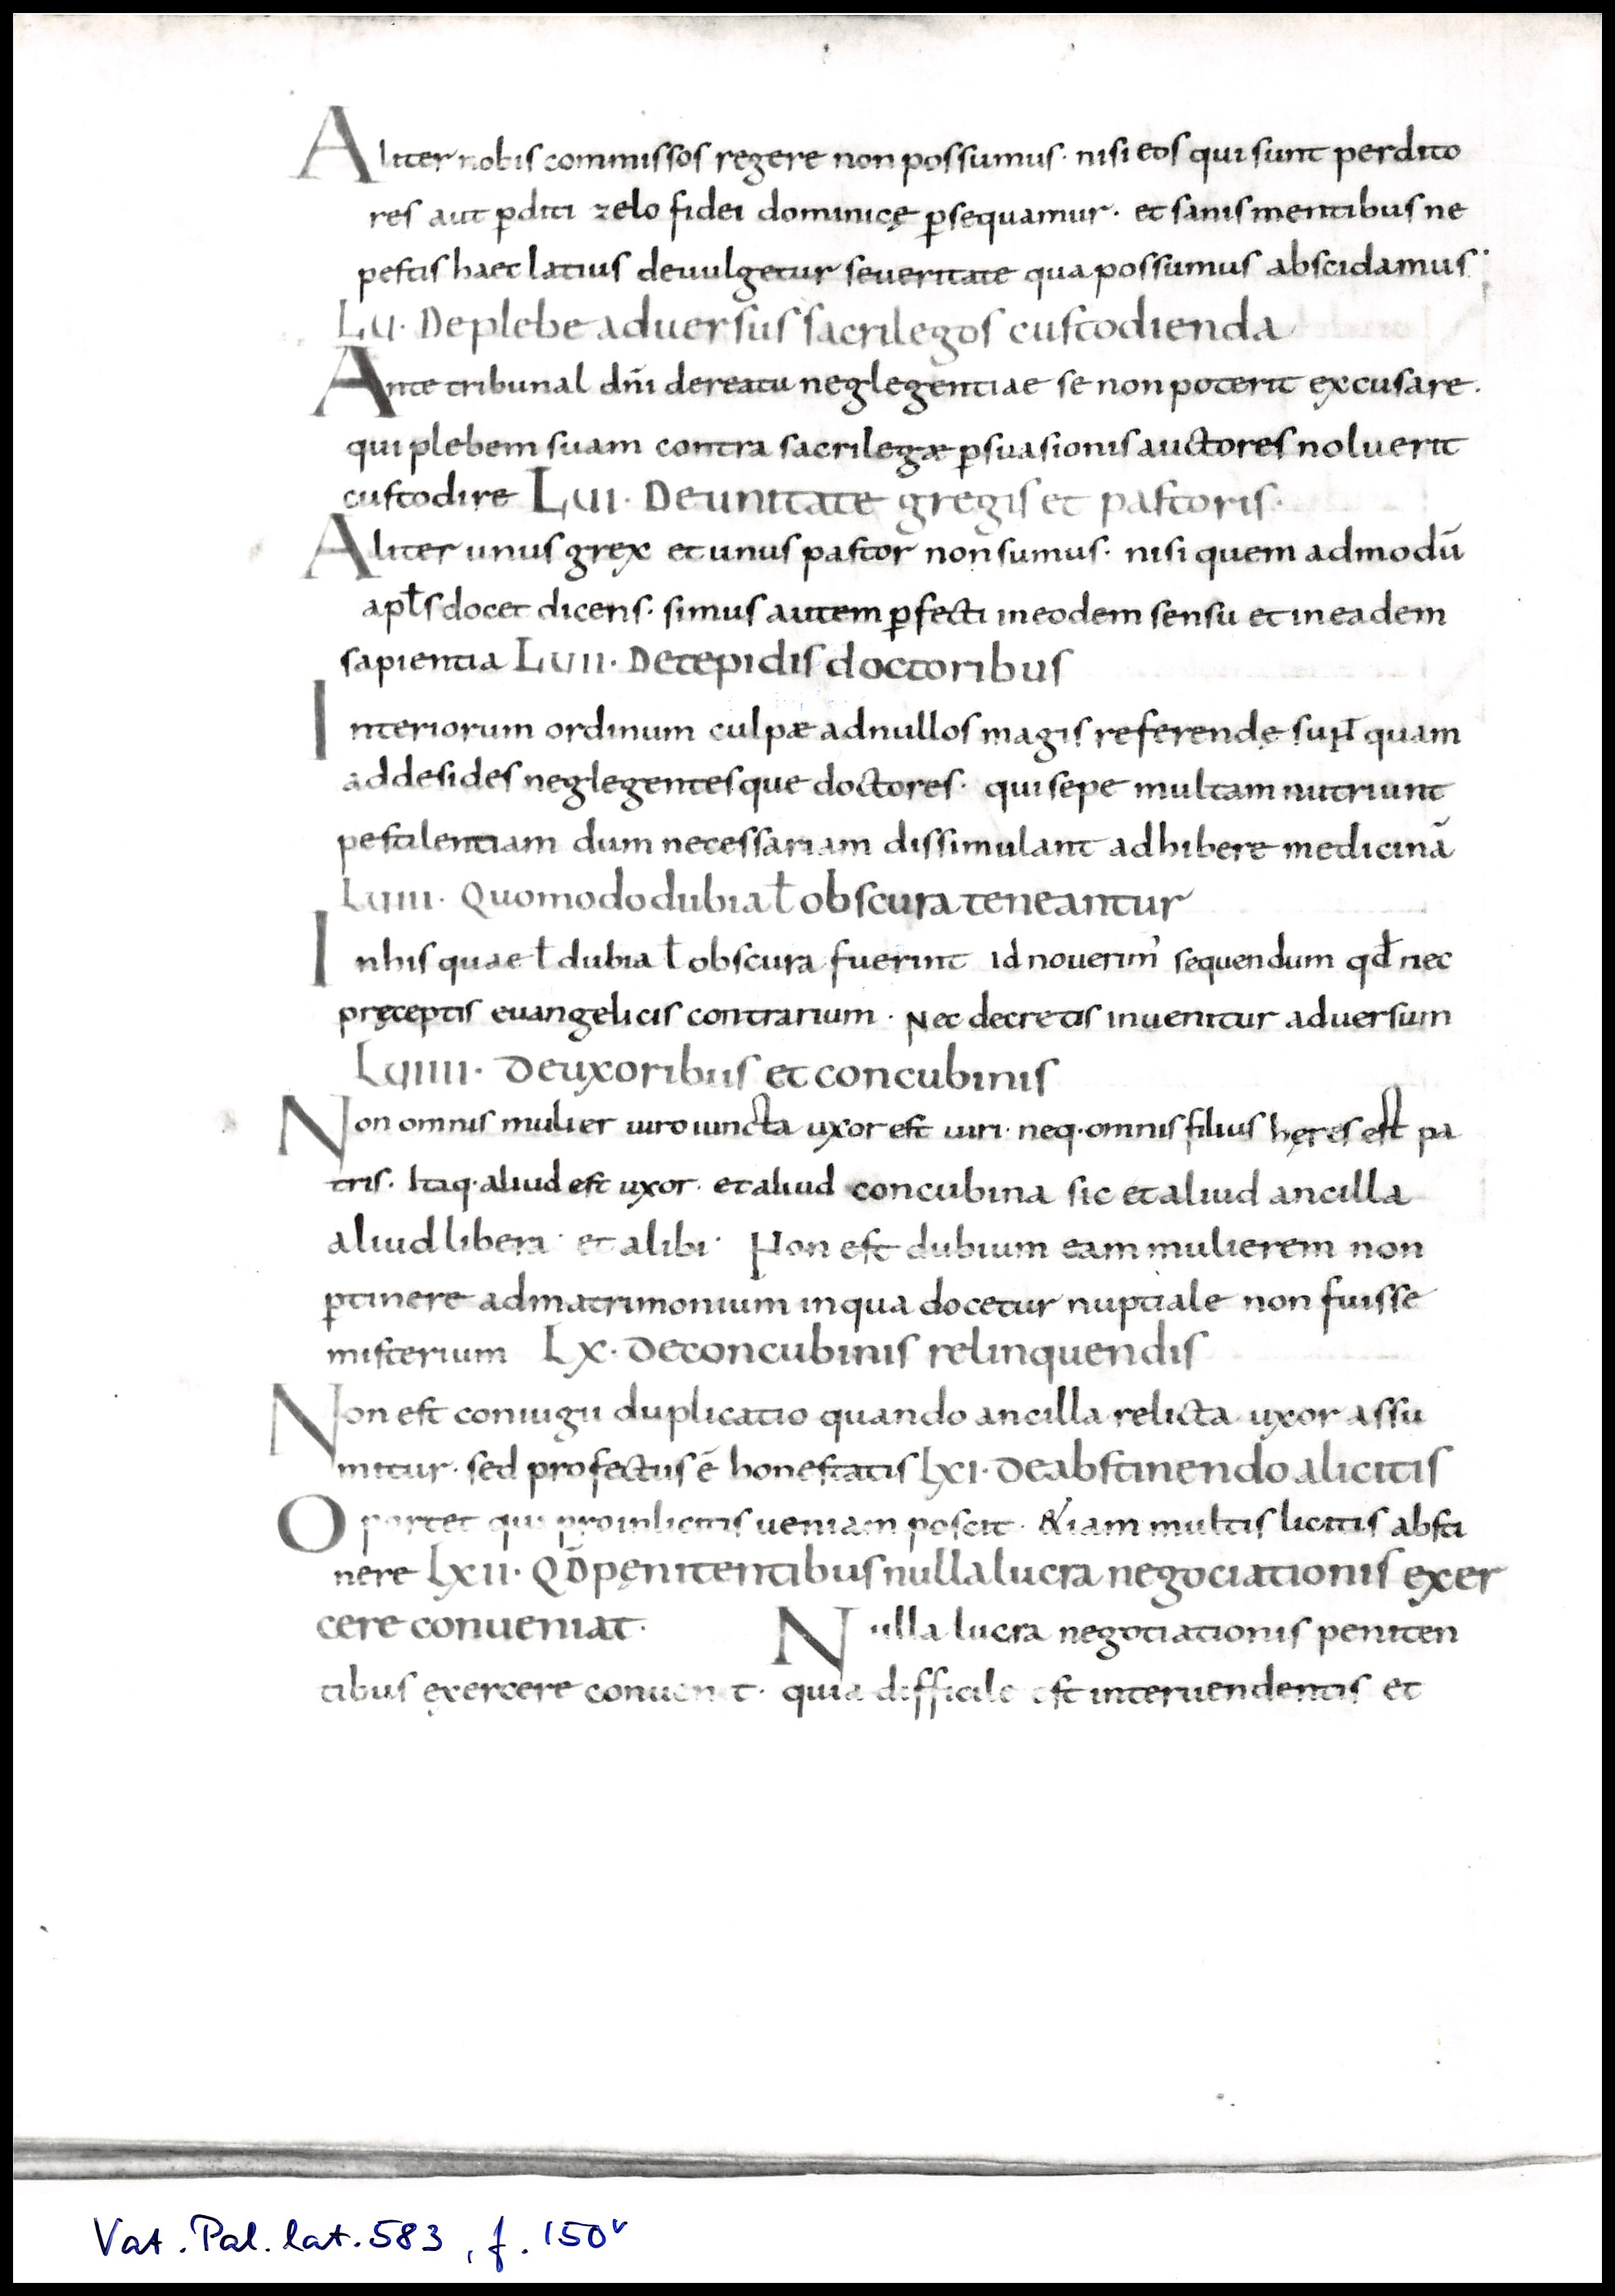 Aliter nobis commissos regere non possumus · nisi eos qui sunt perdito
res aut ꝑditi zelo fidei dominicę ꝑsequamur · et sanis mentibus ne
pestis haec latius devulgetur severitate qua possumus abscidamus ·
LV · De plebe adversus sacrilegos custodienda
Ante tribunal dñi de reatu neglegentiae se non poterit excusare ·
qui plebem suam contra sacrilegæ ꝑsuasionis auctores noluerit
custodire LVI · De unitate gregis et pastoris ·
Aliter unus grex et unus pastor non sumus · nisi quem admodū
apƚs docet dicens · simus autem ꝑfecti in eodem sensu et in eadem
sapientia LVII · De tepidis doctoribus
Interiorum ordinum culpæ ad nullos magis referendę sunt quam
ad desides neglegentesque doctores · qui sepe multam nutriunt
pestilentiam dum necessariam dissimulant adhibere medicinā
LVIII · Quomodo dubia ƚ obscura teneantur
In his quae ƚ dubia ƚ obscura fuerint id noverim' sequendum qđ nec
pręceptis evangelicis contrarium · Nec decretis invenitur adversum
LVIIII · De uxoribus et concubinis
Non omnis mulier viro iuncta uxor est viri · neq · omnis filius hęres est pa
tris · Itaq · aliud est uxor · et aliud concubina sic et aliud ancilla
aliud libera · et alibi · Non est dubium eam mulierem non
ꝑtinere ad matrimonium in qua docetur nuptiale non fuisse
misterium LX · De concubinis relinquendis
Non est coniugii duplicatio quando ancilla relicta uxor assu
mitur · sed profectus ē honestatis LXI · De abstinendo a licitis
Oportet qui pro inlicitis veniam poscit · &iam multis licitis absti
nere LXII · QD̄ pęnitentibus nulla lucra negociationis exer
cere conveniat · Nulla lucra negotiationis peniten
tibus exercere convenit · quia difficile est intervendentis et
Vat. Pal. lat. 583, f. 150v